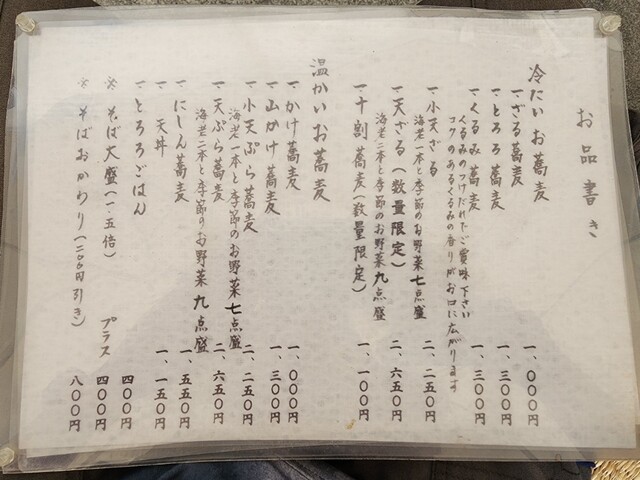 お品書き
冷たいお蕎麦
一、ざる蕎麦 一、〇〇〇円
一、とろろ蕎麦 一、三〇〇円
一、くるみ蕎麦 一、三〇〇円
くるみのつけだれでご賞味下さい
コクのあるくるみの香りがお口に広がります
一、小天ざる 二、二五〇円
海老一本と季節のお野菜七点盛
一、天ざる(数量限定) 二、六五〇円
海老二本と季節のお野菜九点盛
一、十割蕎麦(数量限定) 一、一〇〇円
温かいお蕎麦
一、かけ蕎麦 一、〇〇〇円
一、山かけ蕎麦 一、三〇〇円
一、小天ぷら蕎麦 二、二五〇円
海老一本と季節のお野菜七点盛
一、天ぷら蕎麦 二、六五〇円
海老二本と季節のお野菜九点盛
一、にしん蕎麦 一、五五〇円
一、天丼 一、一五〇円
一、とろろごはん 四〇〇円
※そば大盛(一.五倍) プラス 四〇〇円
※そばおかわり(二〇〇円引き) 八〇〇円